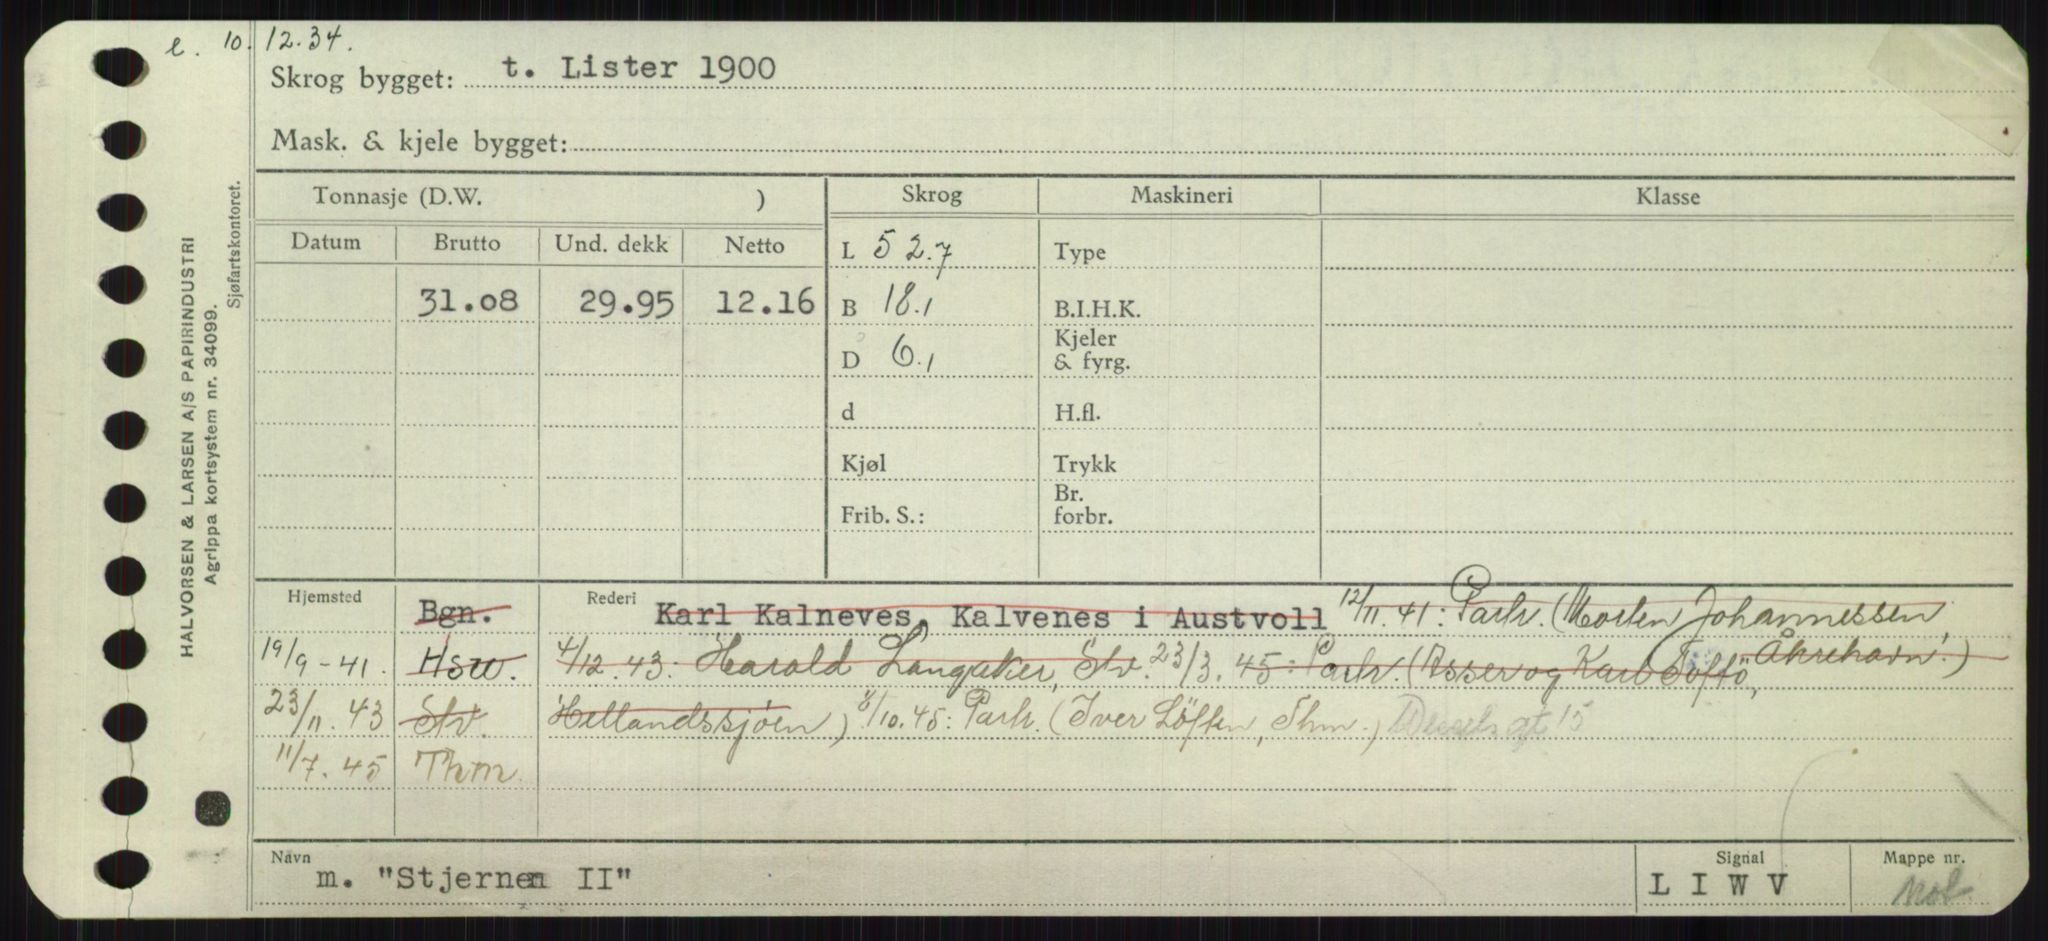 e. 10. 12.34.
Skrog bygget: t. Lister 1900
Mask. & kjele bygget:
HALVORSEN & LARSEN A/S PAPIRINDUSTRI
Agrippa kortsystem nr. 34099.
Sjøfartskontoret.
Tonnasje (D.W. ) Skrog Maskineri Klasse
Datum Brutto Und. dekk Netto L 52.7 Type
31.08 29.95 12.16 B 18.1 B.I.H.K.
D 6.1 Kjeler
& fyrg.
d H.fl.
Kjøl Trykk
Frib. S.: Br.
forbr.
Hjemsted Bgn. Rederi Karl Kalneves, Kalvenes i Austvoll 12/11.41: Partr. (Morten Johannessen,
Åkrehavn.)
19/9-41. Hsw. 4/12.43: Harald Langaker, Stv. 23/3.45: Partr. (Asser og Karl Toftö,
23/11.43 Stv. Hellandssjöen) 8/10.45: Partr. (Iver Löften, Thm.)
11/7.45 Thm.
Navn m. "Stjernen II" Signal L I W V Mappe nr.